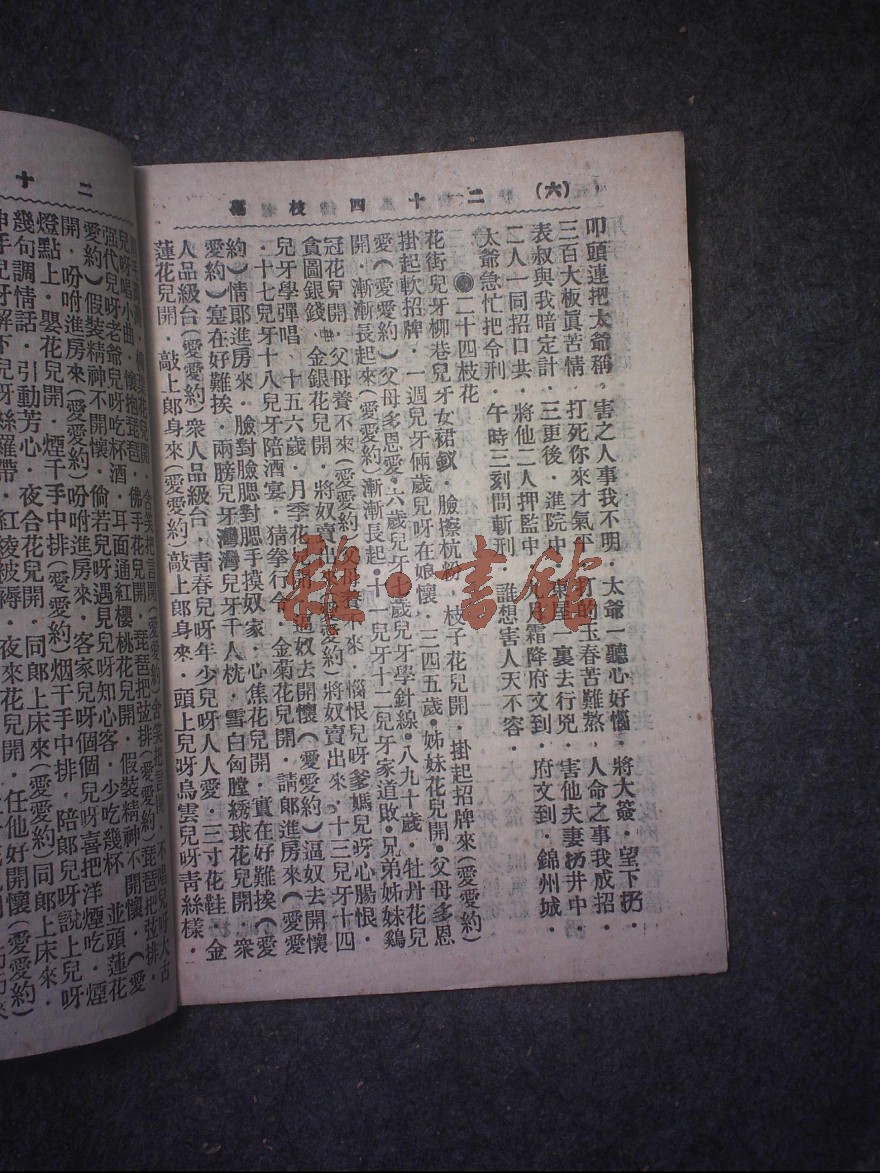 二十四枝花 (六)
叩頭連把太爺稱，害之人事我不明．太爺一聽心好惱．將大簽．望下扔．
三百大板眞苦情．打死你來才氣平．打的玉春苦難熬．人命之事我成招．
表叔與我暗定計．三更後．進院中．裏去行兇．害他夫妻扔井中．
二人一同招口共．將他二人押監中．九月霜降府文到．府文到．錦州城．
太爺急忙把令刑．午時三刻問斬刑．誰想害人天不容．
二十四枝花
花街兒牙柳巷兒牙女裙釵．臉擦杭粉．枝子花兒開．掛起招牌來(愛愛約)
掛起軟招牌．一週兒牙倆歲兒呀在娘懷．三四五歲．姊妹花兒開．父母多恩
愛(愛愛約)父母多恩愛．六歲兒牙七歲兒牙學針線．八九十歲．牡丹花兒
開．漸漸長起來(愛愛約)漸漸長起．十一兒牙十二兒牙家道敗．兄弟姊妹鷄
冠花兒開．父母養不來(愛愛約)父母養不來．惱恨兒呀爹媽兒呀心腸恨．
貪圖銀錢．金銀花兒開．將奴賣出來(愛愛約)將奴賣出來．十三兒牙十四
兒牙學彈唱．十五六歲．月季花兒開．逼奴去開懷(愛愛約)逼奴去開懷
．十七兒牙十八兒牙陪酒宴．猜拳行令．金菊花兒開．請郎進房來(愛愛
約)情郎進房來．臉對臉腮對腮手摸奴家．心焦花兒開．實在好難挨(愛
愛約)寔在好難挨．兩膀兒牙灣灣兒牙千人枕．雪白匈膛綉球花兒開．衆
人品級台(愛愛約)衆人品級台．青春兒呀年少兒呀人人愛．三寸花鞋．金
蓮花兒開．敲上郎身來(愛愛約)敲上郎身來．頭上兒呀烏雲兒呀青絲樣．
二十
花兒開．含笑把言開(愛愛約)含笑把言開．不唱兒呀大古
兒呀唱小曲．懷抱琵琶．佛手花兒開．琵琶把弦排(愛愛約)琵琶把弦排．
强代兒呀老爺兒呀吃杯酒．耳面通紅櫻桃花兒開．假裝精神不開懷．(愛
愛約)假裝精神不開懷．偷若兒呀遇見兒呀知心客．少吃幾杯．並頭蓮花
開．吩咐進房來(愛愛約)吩咐進房來．客家兒呀個個兒呀喜把洋煙吃．煙
燈點上．罌花兒開．煙干手中排(愛愛約)烟干手中排．陪郎兒呀說上兒呀
幾句調情話．引動芳心．夜合花兒開．同郎上床來(愛愛約)同郎上床來．
伸手兒牙解下兒牙絲羅帶．紅綾被褥．夜來花兒開．任他好開懷(愛愛約)